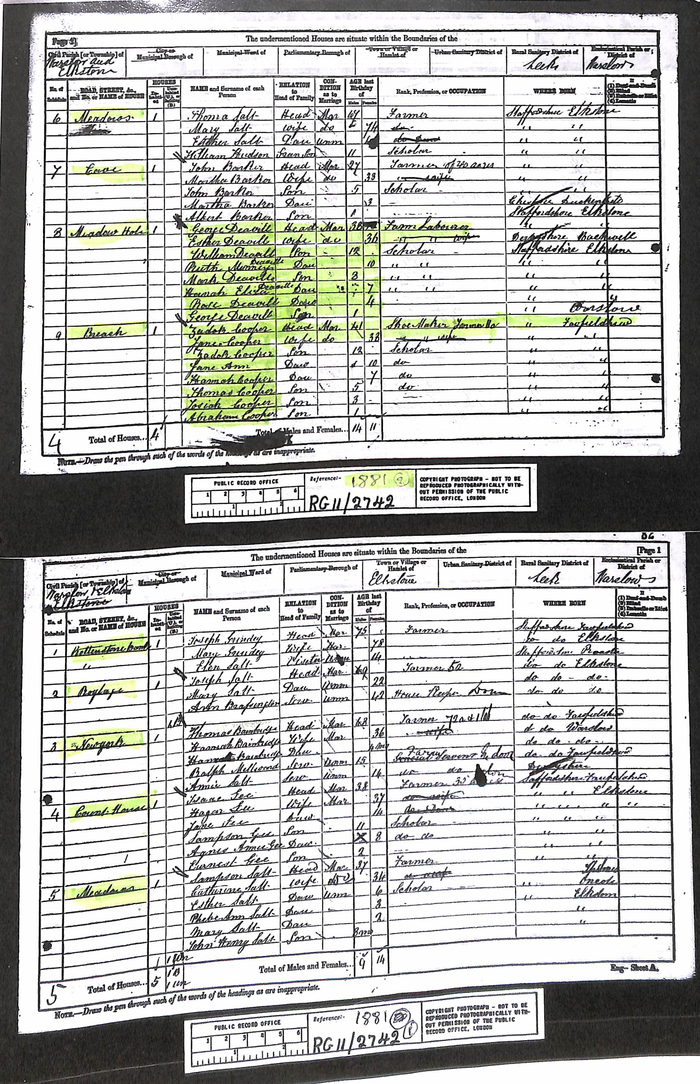 Page 2]
The undermentioned Houses are situate within the Boundaries of the
Civil Parish [or Township] of
City or Municipal Borough of
Municipal Ward of
Parliamentary Borough of
Town or Village or Hamlet of
Urban Sanitary District of
Rural Sanitary District of
Ecclesiastical Parish or District of
Warslow and Elkstone
Leek
Warslow
No. of Schedule
ROAD, STREET, &c., and No. or NAME of HOUSE
HOUSES
NAME and Surname of each Person
RELATION to Head of Family
CONDITION as to Marriage
AGE last Birthday of
Males Females
Rank, Profession, or OCCUPATION
WHERE BORN
(1) Deaf-and-Dumb
(2) Blind
(3) Imbecile or Idiot
(4) Lunatic
6 Meadows 1 Thomas Salt Head Mar 67 Farmer Staffordshire Elkstone
Mary Salt Wife do 74 " "
Esther Salt Daur unm " "
William Hudson Grandson 11 Scholar " "
7 Cave 1 John Barker Head Mar 27 Farmer of 40 acres " "
Martha Barker Wife do 33 " "
John Barker Son 5 Scholar " "
Martha Barker Daur 3
Albert Barker Son 1 Staffordshire Elkstone
8 Meadow Hole 1 George Deavill Head Mar 38 Farm Labourer
Esther Deavill Wife do 36 " " wife Derbyshire Bakewell
William Deavill Son 12 Scholar Staffordshire Elkstone
Deavill Daur 10 " "
Mark Deavill Son 8 " "
Hannah Eliza Deavill Daur 7 " "
Rose Deavill Daur 4 "
George Deavill Son 1 "
9 Breach 1 Zadok Cooper Head Mar 41 Shoe Maker " Fawfieldhead
Jane Cooper Wife do 38 " wife " "
Zadok Cooper Son 12 Scholar " "
Jane Ann Daur 10 do " "
Hannah Cooper Daur 7 do " "
Thomas Cooper Son 5 do " "
Josiah Cooper Son 3 " "
Abraham Cooper Son 1 " "
4 Total of Houses... 4 Total of Males and Females... 14 11
NOTE.—Draw the pen through such of the words of the headings as are inappropriate.
PUBLIC RECORD OFFICE
1 2 3 4 5 6
Reference:- 1881 2
RG 11/2742
COPYRIGHT PHOTOGRAPH - NOT TO BE REPRODUCED PHOTOGRAPHICALLY WITHOUT PERMISSION OF THE PUBLIC RECORD OFFICE, LONDON
82
[Page 1
The undermentioned Houses are situate within the Boundaries of the
Civil Parish [or Township] of
City or Municipal Borough of
Municipal Ward of
Parliamentary Borough of
Town or Village or Hamlet of
Urban Sanitary District of
Rural Sanitary District of
Ecclesiastical Parish or District of
Warslow & Elkstone
Elkstone
Leek
Warslow
No. of Schedule
ROAD, STREET, &c., and No. or NAME of HOUSE
HOUSES
NAME and Surname of each Person
RELATION to Head of Family
CONDITION as to Marriage
AGE last Birthday of
Rank, Profession, or OCCUPATION
WHERE BORN
(1) Deaf-and-Dumb
(2) Blind
(3) Imbecile or Idiot
(4) Lunatic
1 1 Joseph Grundy Head Mar 75 Farmer Staffordshire Fawfieldhead
Mary Grundy Wife Mar 78 do do Elkstone
Ellen Salt Visitor 14 Staffordshire
2 1 Joseph Salt Head Mar 69 Farmer do do Elkstone
Mary Salt Daur unm 22 do do do
Ann Serv unm 42 House Keeper Dom do do do
3 Newyork 1 Thomas Bainbridge Head Mar 68 Farmer do do Fawfieldhead
Hannah Bainbridge Wife Mar 36 wife do do Warslow
Hannah Bainbridge Daur do do do
Ralph Millward Serv unm 15 do do Fawfieldhead
Annie Salt Serv unm 14 do do Derbyshire
4 Count House 1 Isaac Gee Head Mar 38 Farmer Staffordshire Fawfieldhead
Hagar Gee Wife Mar 37 " " Elkstone
Jane Gee Daur 14 " "
Sampson Gee Son 11 Scholar " "
Agnes Annie Gee Daur 8 do do " "
Ernest Gee Son 2 " "
5 Meadows 1 Sampson Salt Head Mar 37 Farmer " "
Catherine Salt Wife do 34
Esther Salt Daur unm 6 Scholar
Phebe Ann Salt Daur 3 Elkstone
Mary Salt Daur 2 "
John Henry Salt Son 3mo "
5 Total of Houses 5 Total of Males and Females... 9 14
Eng—Sheet A.
NOTE.—Draw the pen through such of the words of the headings as are inappropriate.
PUBLIC RECORD OFFICE
1 2 3 4 5 6
Reference:- 1881 1
RG 11/2742
COPYRIGHT PHOTOGRAPH - NOT TO BE REPRODUCED PHOTOGRAPHICALLY WITHOUT PERMISSION OF THE PUBLIC RECORD OFFICE, LONDON